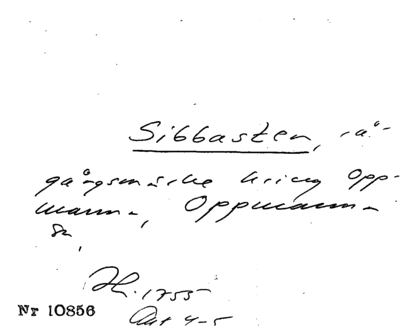 Sibbasten, rå-
gångsmärke kring Opp-
manna, Oppmanna
sn,
H. 1755
Akt 4-5
Nr 10856